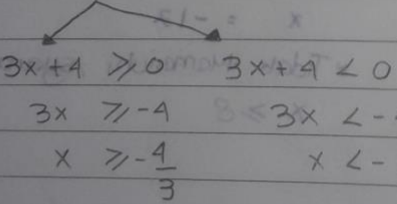 3x+4 ⩾ 0    3x+4 < 0
3x ⩾ -4    3x < -
x ⩾ -4/3    x < -